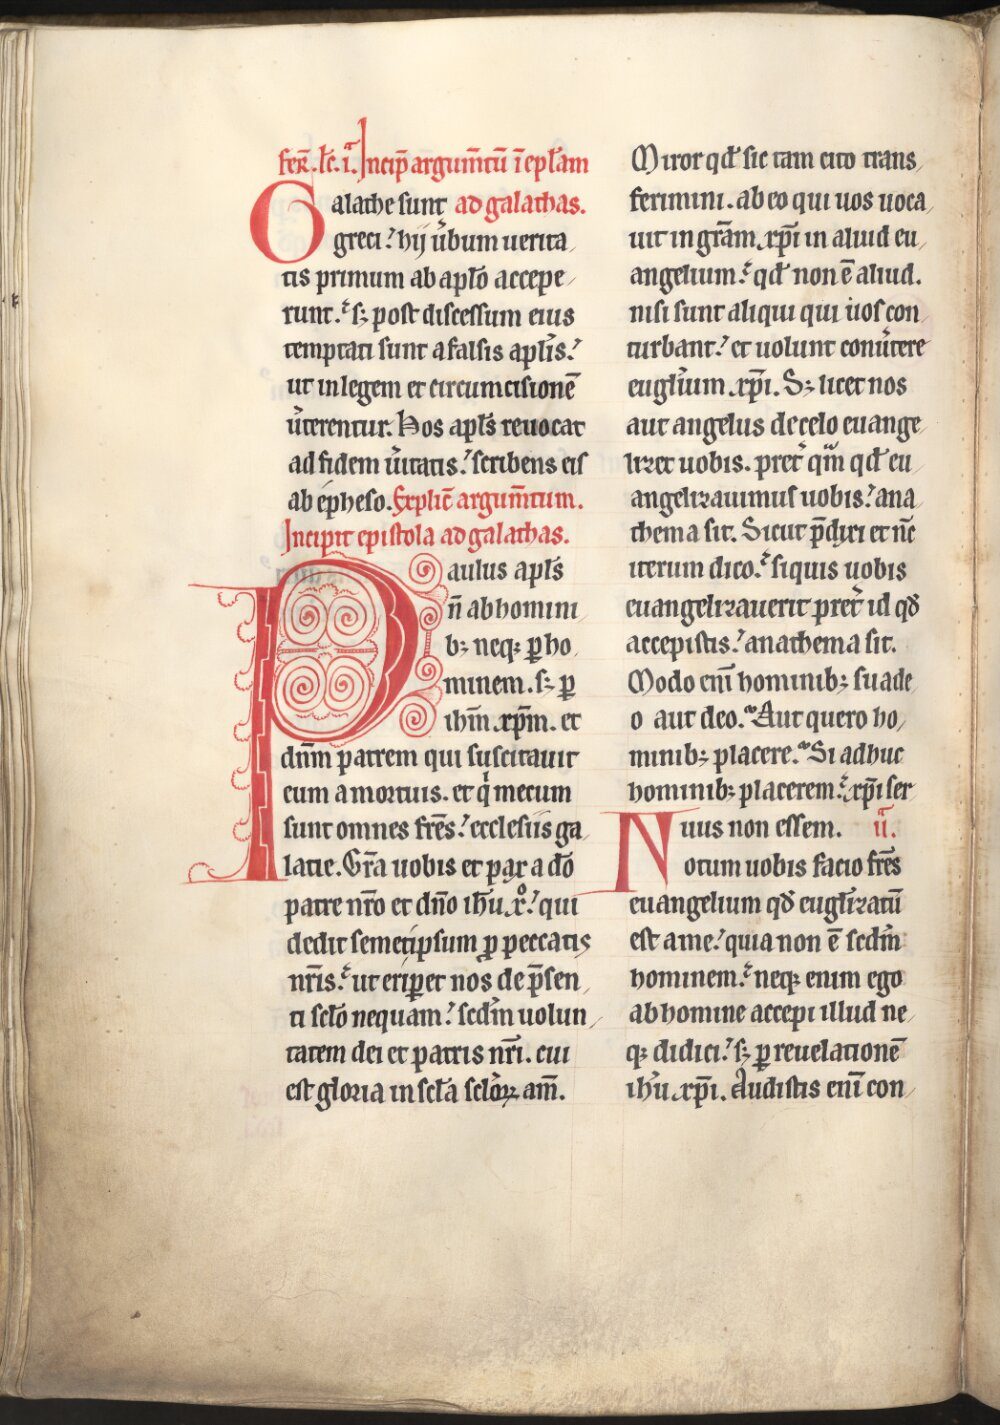 fer̄. lc̄. i.ᵃ Incip̄ argum̄tū ī ep̄lam
Galathe sunt ad galathas.
greci. hij ůbum uerita
tis primum ab apl̄o accepe
runt. sꝫ post discessum eius
temptati sunt a falsis apl̄is.
ut in legem et circumcisionē
ůterentur. Hos apl̄s reuocat
ad fidem ůitatis. scribens eis
ab epheso. Explic̄ argum̄tum.
Incipit epistola ad galathas.
Paulus apl̄s
n̄ ab homini
bꝫ neqꝫ ꝑ ho
minem. sꝫ ꝑ
ihm̄ xp̄m. et
dn̄m patrem qui suscitauit
eum a mortuis. et qⁱ mecum
sunt omnes fr̄es. ecclesiis ga
latie. Gr̄a uobis et pax a dō
patre nr̄o et dn̄o ihū xᵒ. qui
dedit semetipsum ꝓ peccatis
nr̄is. ut eriꝑet nos de p̄sen
ti scl̄o nequam. scdm̄ uolun
tatem dei et patris nr̄i. cui
est gloria in scl̄a scl̄oꝝ am̄.
Miror qđ sic tam cito trans
ferimini. ab eo qui uos uoca
uit in gr̄am xp̄i in aliud eu
angelium. qđ non ē aliud.
nisi sunt aliqui qui uos con
turbant. et uolunt conůtere
eugl̄ium xp̄i. Sꝫ licet nos
aut angelus de celo euange
lizet uobis. preť qm̄ qđ eu
angelizauimus uobis. ana
thema sit. Sicut p̄dixi et nc̄
iterum dico. siquis uobis
euangelizauerit preť id qđ
accepistis. anathema sit.
Modo eni̅ hominibꝫ suade
o aut deo. Aut quero ho
minibꝫ placere. Si adhuc
hominibꝫ placerem. xp̄i ser
uus non essem. ii.ᵃ
Notum uobis facio fr̄es
euangelium qđ eugl̄izatū
est a me. quia non ē scdm̄
hominem. neqꝫ enim ego
ab homine accepi illud ne
qꝫ didici. sꝫ ꝑ reuelationē
ihū xp̄i. Audistis eni̅ con